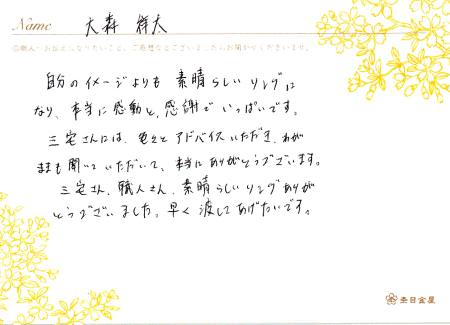 Name 大森 祥大
◎職人へお伝えになりたいこと、ご感想などございましたらお聞かせくださいませ。
自分のイメージよりも 素晴らしいリングに
なり、本当に感動と、感謝でいっぱいです。
三宅さんには、色々とアドバイスいただき、わが
ままも聞いていただいて、本当にありがとうございます。
三宅さん、職人さん、素晴らしいリングありが
とうございました。早く渡してあげたいです。
杢目金屋